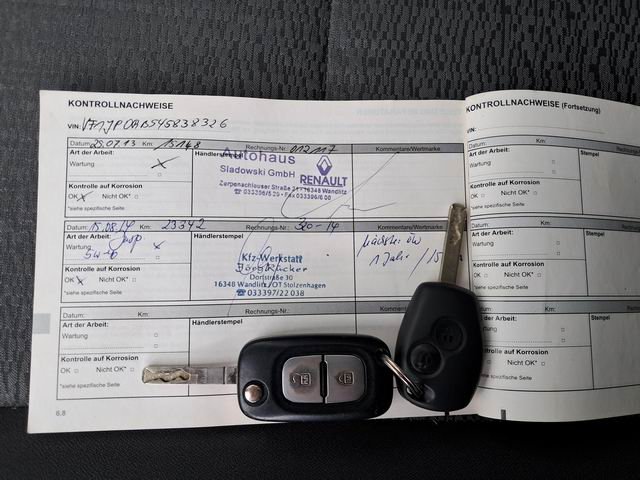 KONTROLLNACHWEISE
VIN: VF1JP0AB545838326
Datum: 25.07.13 Km: 15148 Rechnungs-Nr.: 012117 Kommentare/Wertmarke
Art der Arbeit: Händlerstempel
Wartung
Autohaus
Sladowski GmbH
RENAULT
Zerpenschleuser Straße 16348 Wandlitz
Kontrolle auf Korrosion
OK Nicht OK* □
*siehe spezifische Seite
Datum: 15.08.14 Km: 23342 Rechnungs-Nr.: 320-14 Kommentare/Wertmarke
Art der Arbeit: Händlerstempel
Wartung
Kontrolle auf Korrosion
OK Nicht OK* □
*siehe spezifische Seite
Kfz-Werkstatt
Dorfstraße 30
16348 Wandlitz/OT Stolzenhagen
☎ 033397/22 038
1 Julie/15
Datum: Km: Rechnungs-Nr.:
Art der Arbeit: Händlerstempel
Wartung □
Kontrolle auf Korrosion
OK □ Nicht OK* □
*siehe spezifische Seite
6.8
KONTROLLNACHWEISE (Fortsetzung)
VIN:
Datum: Km:
Art der Arbeit: Stempel
Wartung □
Kontrolle auf Korrosion
OK □ Nicht OK* □
*siehe spezifische Seite
Datum: Km:
Art der Arbeit: Stempel
Wartung □
Kontrolle auf Korrosion
OK □ Nicht OK* □
*siehe spezifische Seite
Km:
Art der Arbeit: Stempel
Wartung □
Kontrolle auf Korrosion
OK □ Nicht OK* □
*siehe spezifische Seite